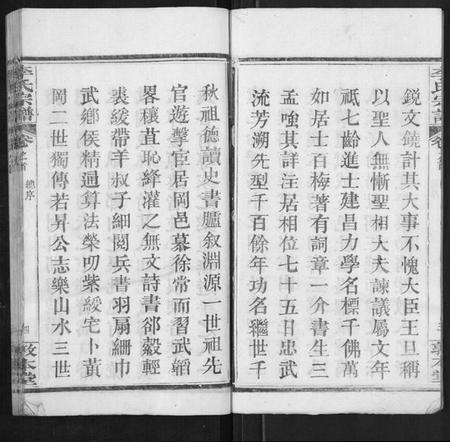 鋭文鏡計其大事不愧大臣王旦稱
以聖人無慚聖相大夫諫議屬文年
祇七齡進士建昌力學名標千佛萬
如居士百梅著有詞章一介書生三
孟嗤其詳注居相位七十五日忠武
流芳溯先型千百餘年功名繼世千
秋祖德讀史書臚叙淵源一世祖先
官遊擊臣居岡邑慕徐常而習武韜
畧穰苴恥絳灌之無文詩書郤縠輕
裘緩帶羊叔子細閱兵書羽扇綸巾
武鄉侯精通算法榮叨紫綬宅卜黃
岡二世獨傳若昇公志樂山水三世
李氏宗譜
卷之首
總序
四
敦本堂